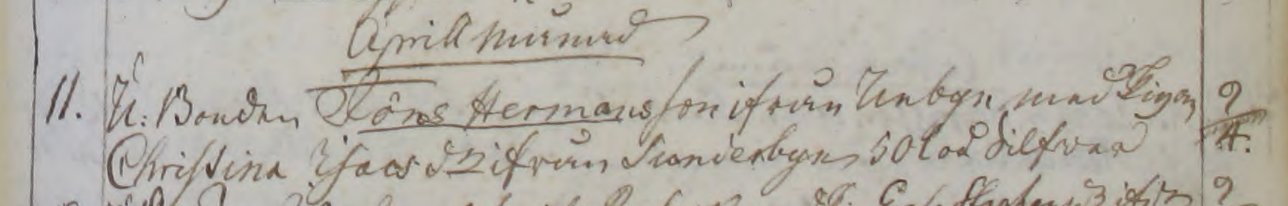 Aprill Månad
11. U: Bonden Jöns Hermansson ifrån Unbyn med Pigan 9/4.
Christina Isacsd:r ifrån Sunderbyn 50 lod Silfver
9